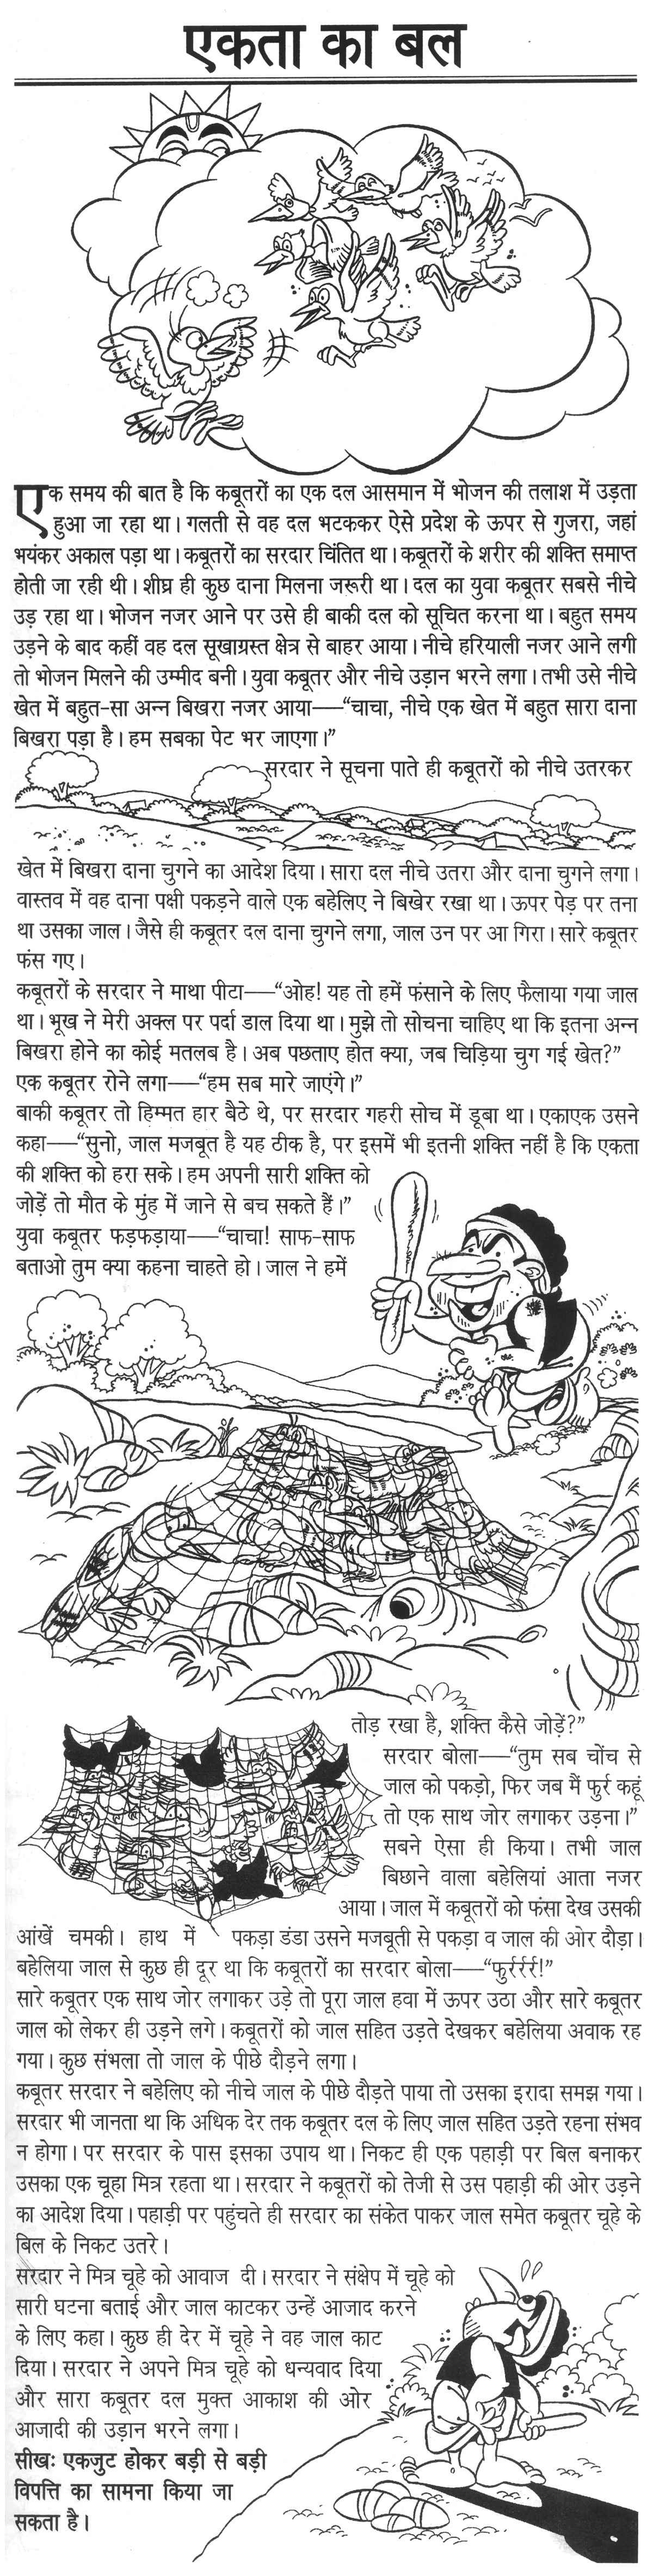 एकता का बल
एक समय की बात है कि कबूतरों का एक दल आसमान में भोजन की तलाश में उड़ता
हुआ जा रहा था। गलती से वह दल भटककर ऐसे प्रदेश के ऊपर से गुजरा, जहां
भयंकर अकाल पड़ा था। कबूतरों का सरदार चिंतित था। कबूतरों के शरीर की शक्ति समाप्त
होती जा रही थी। शीघ्र ही कुछ दाना मिलना जरूरी था। दल का युवा कबूतर सबसे नीचे
उड़ रहा था। भोजन नजर आने पर उसे ही बाकी दल को सूचित करना था। बहुत समय
उड़ने के बाद कहीं वह दल सूखाग्रस्त क्षेत्र से बाहर आया। नीचे हरियाली नजर आने लगी
तो भोजन मिलने की उम्मीद बनी। युवा कबूतर और नीचे उड़ान भरने लगा। तभी उसे नीचे
खेत में बहुत-सा अन्न बिखरा नजर आया—“चाचा, नीचे एक खेत में बहुत सारा दाना
बिखरा पड़ा है। हम सबका पेट भर जाएगा।”
सरदार ने सूचना पाते ही कबूतरों को नीचे उतरकर
खेत में बिखरा दाना चुगने का आदेश दिया। सारा दल नीचे उतरा और दाना चुगने लगा।
वास्तव में वह दाना पक्षी पकड़ने वाले एक बहेलिए ने बिखेर रखा था। ऊपर पेड़ पर तना
था उसका जाल। जैसे ही कबूतर दल दाना चुगने लगा, जाल उन पर आ गिरा। सारे कबूतर
फंस गए।
कबूतरों के सरदार ने माथा पीटा—“ओह! यह तो हमें फंसाने के लिए फैलाया गया जाल
था। भूख ने मेरी अक्ल पर पर्दा डाल दिया था। मुझे तो सोचना चाहिए था कि इतना अन्न
बिखरा होने का कोई मतलब है। अब पछताए होत क्या, जब चिड़िया चुग गई खेत?”
एक कबूतर रोने लगा—“हम सब मारे जाएंगे।”
बाकी कबूतर तो हिम्मत हार बैठे थे, पर सरदार गहरी सोच में डूबा था। एकाएक उसने
कहा—“सुनो, जाल मजबूत है यह ठीक है, पर इसमें भी इतनी शक्ति नहीं है कि एकता
की शक्ति को हरा सके। हम अपनी सारी शक्ति को
जोड़ें तो मौत के मुंह में जाने से बच सकते हैं।”
युवा कबूतर फड़फड़ाया—“चाचा! साफ-साफ
बताओ तुम क्या कहना चाहते हो। जाल ने हमें
तोड़ रखा है, शक्ति कैसे जोड़ें?”
सरदार बोला—“तुम सब चोंच से
जाल को पकड़ो, फिर जब मैं फुर्र कहूं
तो एक साथ जोर लगाकर उड़ना।”
सबने ऐसा ही किया। तभी जाल
बिछाने वाला बहेलियां आता नजर
आया। जाल में कबूतरों को फंसा देख उसकी
आंखें चमकी। हाथ में पकड़ा डंडा उसने मजबूती से पकड़ा व जाल की ओर दौड़ा।
बहेलिया जाल से कुछ ही दूर था कि कबूतरों का सरदार बोला—“फुर्रर्रर्र!”
सारे कबूतर एक साथ जोर लगाकर उड़े तो पूरा जाल हवा में ऊपर उठा और सारे कबूतर
जाल को लेकर ही उड़ने लगे। कबूतरों को जाल सहित उड़ते देखकर बहेलिया अवाक रह
गया। कुछ संभला तो जाल के पीछे दौड़ने लगा।
कबूतर सरदार ने बहेलिए को नीचे जाल के पीछे दौड़ते पाया तो उसका इरादा समझ गया।
सरदार भी जानता था कि अधिक देर तक कबूतर दल के लिए जाल सहित उड़ते रहना संभव
न होगा। पर सरदार के पास इसका उपाय था। निकट ही एक पहाड़ी पर बिल बनाकर
उसका एक चूहा मित्र रहता था। सरदार ने कबूतरों को तेजी से उस पहाड़ी की ओर उड़ने
का आदेश दिया। पहाड़ी पर पहुंचते ही सरदार का संकेत पाकर जाल समेत कबूतर चूहे के
बिल के निकट उतरे।
सरदार ने मित्र चूहे को आवाज दी। सरदार ने संक्षेप में चूहे को
सारी घटना बताई और जाल काटकर उन्हें आजाद करने
के लिए कहा। कुछ ही देर में चूहे ने वह जाल काट
दिया। सरदार ने अपने मित्र चूहे को धन्यवाद दिया
और सारा कबूतर दल मुक्त आकाश की ओर
आजादी की उड़ान भरने लगा।
सीखः एकजुट होकर बड़ी से बड़ी
विपत्ति का सामना किया जा
सकता है।